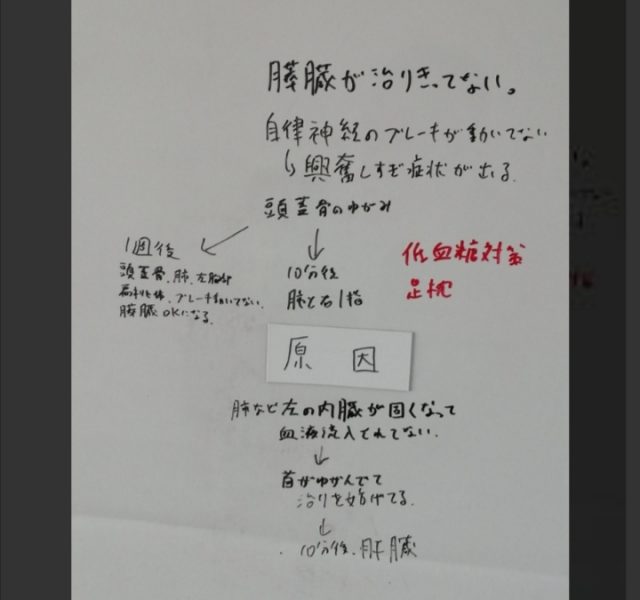 膵臓が治りきってない。
自律神経のブレーキが動いてない
↳興奮しすぎ症状が出る。
頭蓋骨のゆがみ
↙
↓
1週後
頭蓋骨、肺、左胸部
ブレーキ動いてない。
膵臓OKになる。
10分後
肺と右1指
低血糖対策
足枕
原因
肺など左の内臓が固くなって
血液流入できてない。
↓
首がゆがんでて
治りを妨げてる。
↓
10分後、肝臓